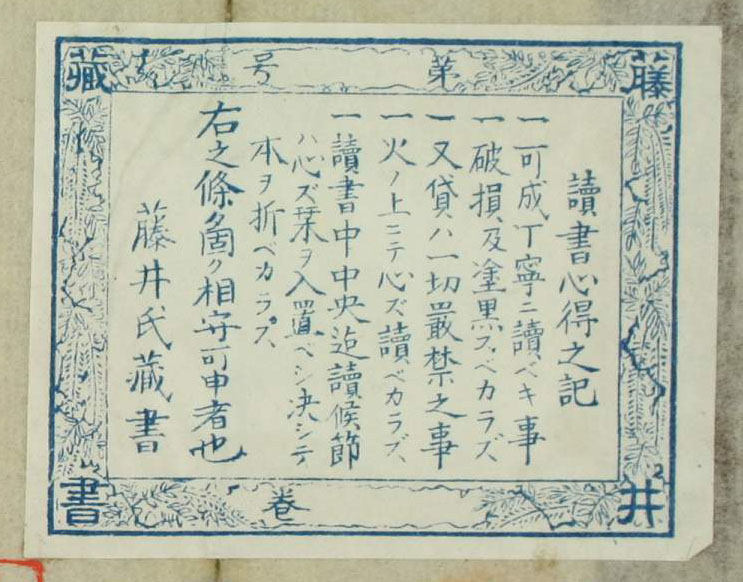 藤井藏書
第 号
卷
讀書心得之記
一可成丁寧ニ讀ベキ事
一破損及塗黒スベカラズ
一又貸ハ一切嚴禁之事
一火ノ上ニテ心ズ讀ベカラズ、
一讀書中中央迄讀候節
ハ心ズ栞ヲ入置ベシ決シテ
本ヲ折ベカラズ、
右之條箇々相守可申者也
藤井氏藏書